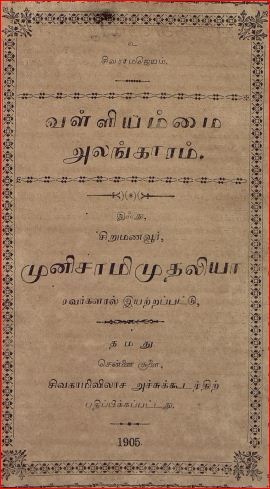 உ
சிவமயம்.
வள்ளியம்மை
அலங்காரம்.
இஃது,
சிறுமணவூர்,
முனிசாமிமுதலியா
ரவர்களால் இயற்றப்பட்டு,
தமது
சென்னை சூளை,
சிவகாமிவிலாச அச்சுக்கூடத்திற்
பதிப்பிக்கப்பட்டது.
1905.